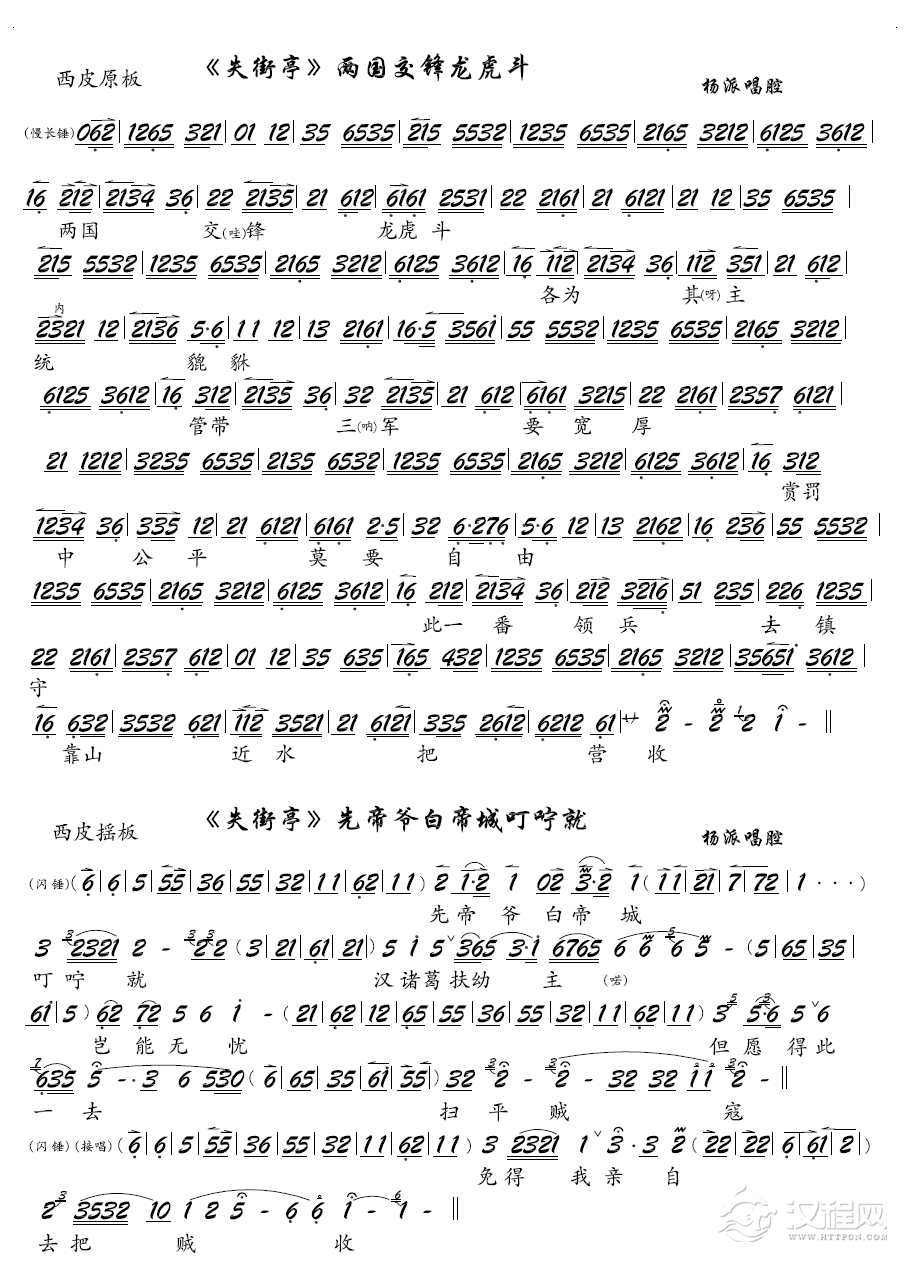 《失街亭》两国交锋龙虎斗
西皮原板
杨派唱腔
(慢长锤) 062|1265 321|01 12|35 6535|215 5532|1235 6535|2165 3212|6125 3612|
16 212|2134 36|22 2135|21 612|6161 2531|22 2161|21 6121|21 12|35 6535|
两国 交(哇)锋 龙虎 斗
215 5532|1235 6535|2165 3212|6125 3612|16 112|2134 36|112 351|21 612|
各为 其(呀)主
内
2321 12|2136 5·6|11 12|13 2161|16·5 3561|55 5532|1235 6535|2165 3212|
统 貔 貅
6125 3612|16 312|2135 36|32 2135|21 612|6161 3215|22 2161|2357 6121|
管带 三(呐)军 要 宽 厚
21 1212|3235 6535|2135 6532|1235 6535|2165 3212|6125 3612|16 312
赏罚
1234 36|335 12|21 6121|6161 2·5|32 6·276|5·6 12|13 2162|16 236|55 5532|
中 公 平 莫 要 自 由
1235 6535|2165 3212|6125 3612|16 212|2134 36|212 3216|51 235|226 1235|
此一 番 领 兵 去 镇
22 2161|2357 612|01 12|35 635|165 432|1235 6535|2165 3212|35651 3612|
守
16 632|3532 621|112 3521|21 6121|335 2612|6212 61|サ 2 - 2 1 2 1 - ‖
靠山 近 水 把 营 收
《失街亭》先帝爷白帝城叮咛就
西皮摇板
杨派唱腔
(闪锤)(6|6|5|55|36|55|32|11|62|11) 2 1·2 1 02 3·2 1 (11|21|7|72|1 ···)
先 帝 爷 白 帝 城
3 3 2321 2 - 3 2 3 2 (3|21|61|21) 5 1 5 ˇ 3 365 3·1 6765 6 6 5 6 5 - (5|65|35|
叮 咛 就 汉 诸 葛 扶 幼 主 (喏)
61|5) 62 72 5 6 1 - (21|62|12|65|55|36|55|32|11|62|11) 3 5 3 5·6 5 ˇ 6
岂 能 无 忧 但 愿 得 此
7 635 5 - · 3 6 530 (6|65|35|61|55) 32 2 - 2 - 32 32 11 3 2 - ‖
一 去 扫 平 贼 寇
(闪锤)(接唱)(6|6|5|55|36|55|32|11|62|11) 3 2321 1 ˇ 3 · 3 2 (22|22|6 61|2)
免 得 我 亲 自
2 3 3532 10 1 2 5 - 6 6 1 - 6 1 - ‖
去 把 贼 收
汉程网
WWW.HTTPCN.COM